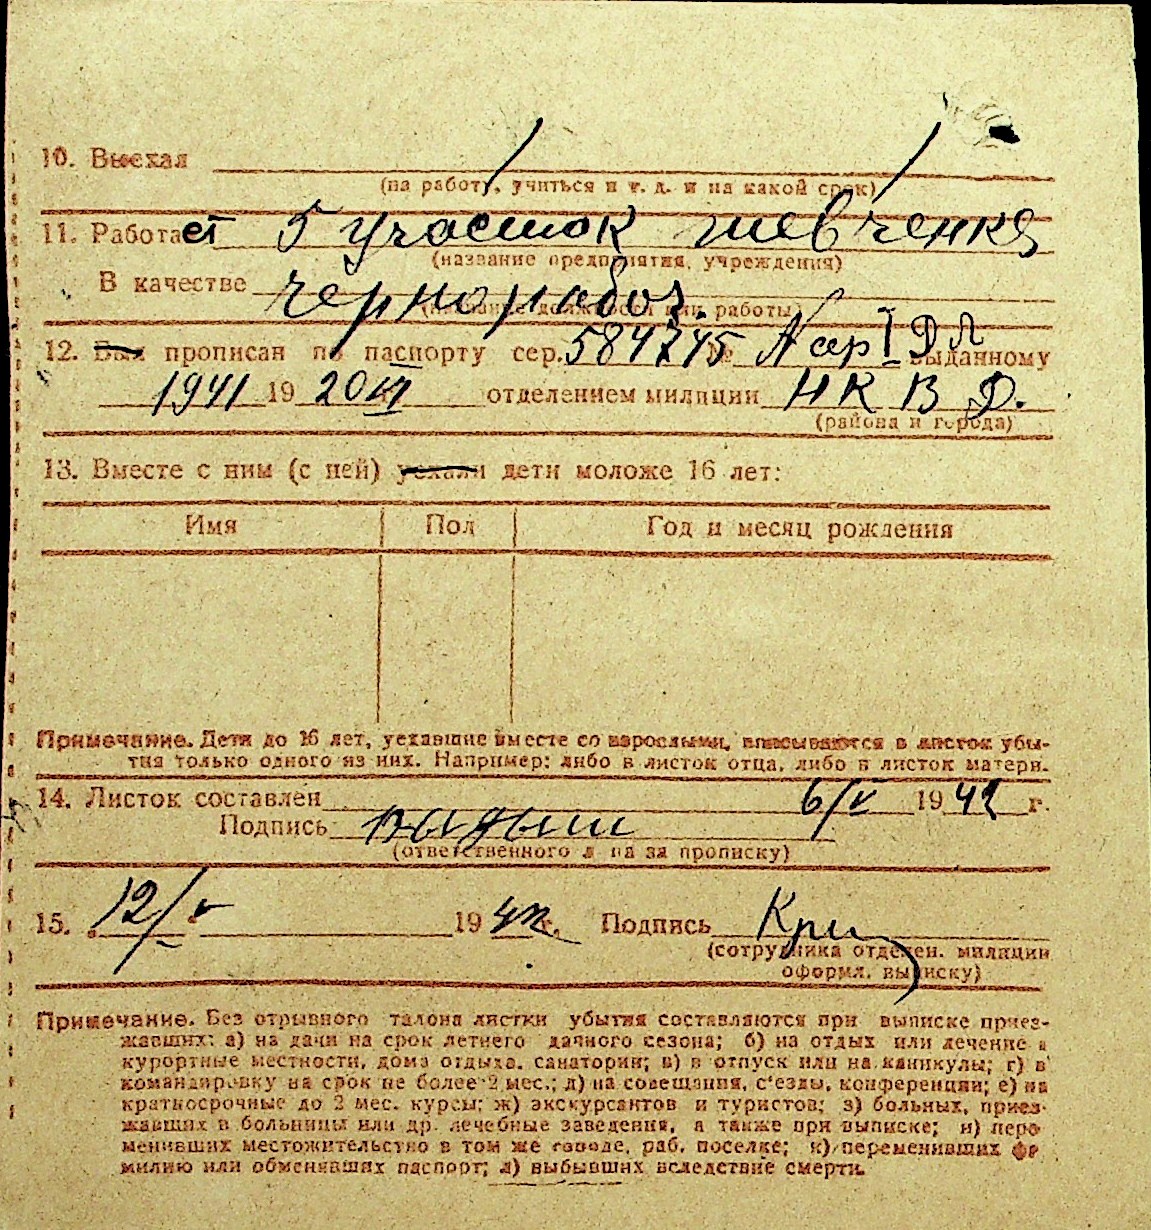 10. Выехал
(на работу, учиться и т. д. и на какой срок)
11. Работает 5 участок Шевченка
(название предприятия, учреждения)
В качестве чернорабоч.
(название должности или работы)
12. Был прописан по паспорту сер. 584745 № I ДЛ выданному
1941 19 20 VI отделением милиции НКВД.
(района и города)
13. Вместе с ним (с ней) уехали дети моложе 16 лет:
Имя Пол Год и месяц рождения
Примечание. Дети до 16 лет, уехавшие вместе со взрослыми, вписываются в листок убы-
тия только одного из них. Например: либо в листок отца, либо в листок матери.
14. Листок составлен 6/V 1942 г.
Подпись
(ответственного л па за прописку)
15. 12/V 1942 г. Подпись
(сотрудника отделен. милиции
оформл. выписку)
Примечание. Без отрывного талона листки убытия составляются при выписке приез-
жавших: а) на дачи на срок летнего дачного сезона; б) на отдых или лечение в
курортные местности, дома отдыха, санатории; в) в отпуск или на каникулы; г) в
командировку на срок не более 2 мес.; д) на совещания, с'езды, конференции; е) на
краткосрочные до 2 мес. курсы; ж) экскурсантов и туристов; з) больных, приез-
жавших в больницы или др. лечебные заведения, а также при выписке; и) пере
менивших местожительство в том же городе, раб. поселке; к) переменивших фа
милию или обменявших паспорт; л) выбывших вследствие смерти.